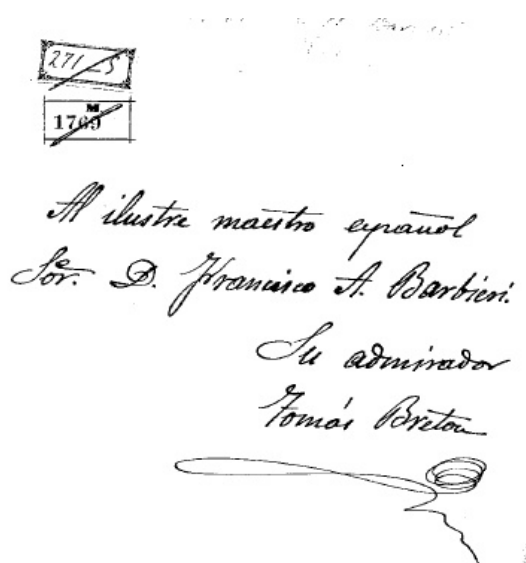 271-5
M
1769
Al ilustre maestro español
Exmo. Sor. D. Francisco A. Barbieri.
Su admirador
Tomás Breton